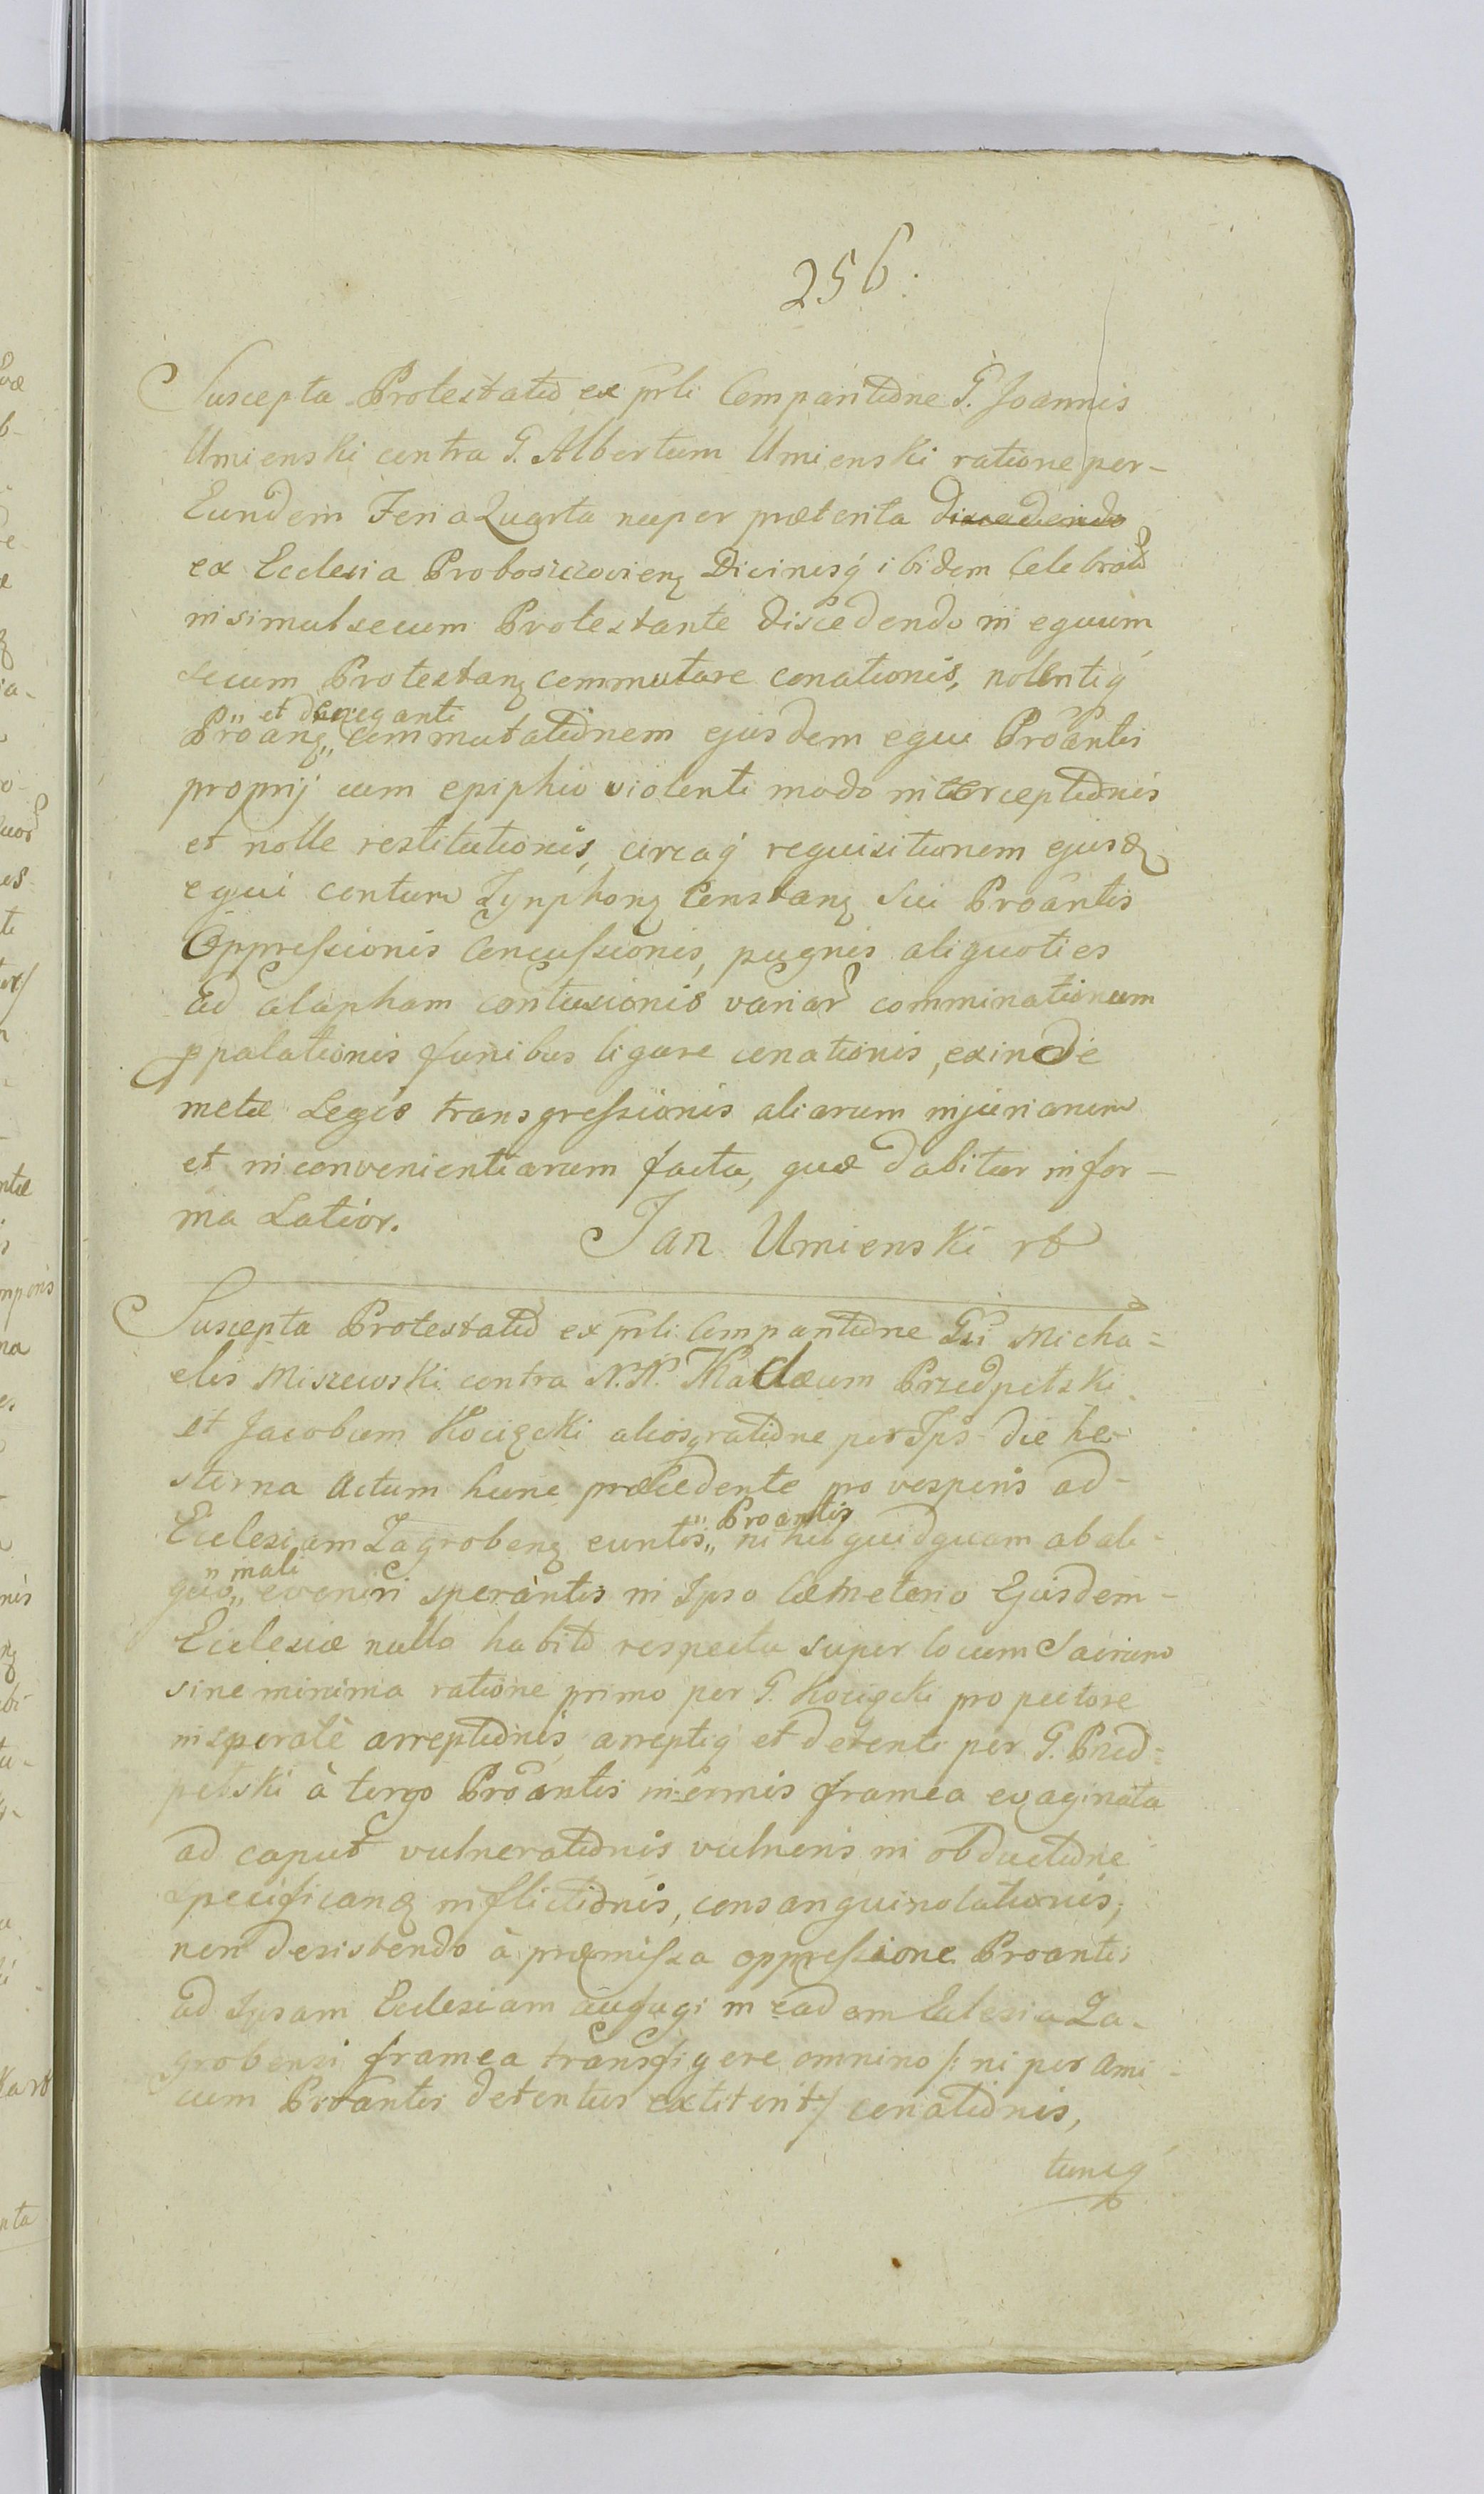 256.
Suscepta Protestatio ex pñli Comparitiõne G. Joannis
Umienski contra G. Albertum Umienski ratione per-
Eundem Feria Quarta nuper præterita discedendo
ex Ecclesia Proboszczovienȝ Divinisq́ ibidem Celebratis
insimul secum Protestante discedendo in equum
secum Protestanȝ commutare conationis, nolentiq́
et deneganti
Pröanȝ,, commutatiõnem ejusdem equi Proãntis
proprij cum epiphio violenti modo interceptiõnis
et nolle restitutionis, circaq́ requisitionem ejusd
equi centum Tynphonȝ Constanȝ Sui Proãntis
Oppressionis Concussionis, pugnis aliquoties
ad alapham contusionis variar comminationum
ppalationis funibus ligare conationis, exinde
metæ Legis transgressionis aliarum injuriarum
et inconvenientiarum facta, quæ dabitur in for-
ma Latior.
Jan Umienski
Suscepta Protestatio ex pñli Comparitiõne Gsi Micha=
elis Miszewski contra N.N. Przedpełski
et Jacobum Kocięcki aliosq ratiõne per Ips die he-
sterna Actum hunc præcedente pro vesperis ad-
Proantis
Ecclesiam Zagrobenȝ euntis,, nihil quidquam ab ali-
mali
quo,, eveniri sperantis in Ipso Cæmeterio Ejusdem-
Ecclesiæ nullo habito respectu super locum Sacrum
sine minima ratione primo per G. Kocięcki pro pectore
insperatè arreptiõnis, arreptiq́ et detenti per G. Przed=
pełski à tergo Proãntis inermis framea evaginata
ad caput vulneratiõnis vulneris in obductiõne
specificanȝ inflictiõnis, consanguinolationis,
non desistendo à præmissa oppressione Proantis
ad Ipsam Ecclesiam aufugi in eadem Eclesia Za-
grobensi framea transfigere omnino /: ni per ami-
cum Proãntis detentus extiterit :/ conatiõnis,
tuncq́